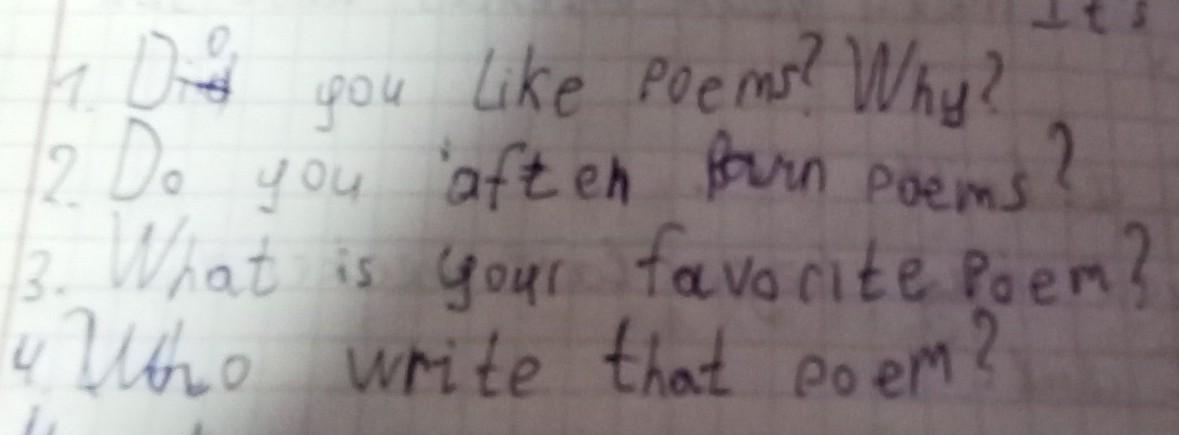 It s
1. Do you like poems? Why?
2. Do you aften poems?
3. What is your favorite Poem?
4 Who write that poem?